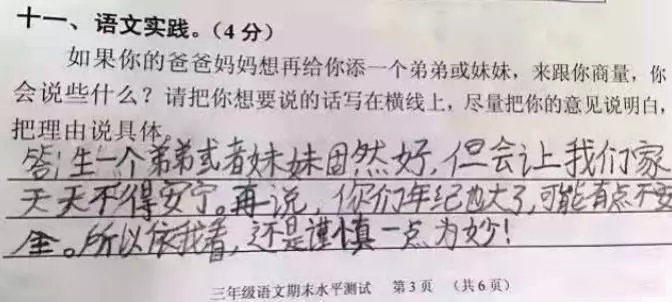 十一、语文实践。（4分）
如果你的爸爸妈妈想再给你添一个弟弟或妹妹，来跟你商量，你
会说些什么？请把你想要说的话写在横线上，尽量把你的意见说明白，
把理由说具体。
答：生一个弟弟或者妹妹固然好，但会让我们家
天天不得安宁。再说，你们年纪也大了，可能有点不安
全。所以依我看，还是谨慎一点为妙！
三年级语文期末水平测试 第3页 （共6页）